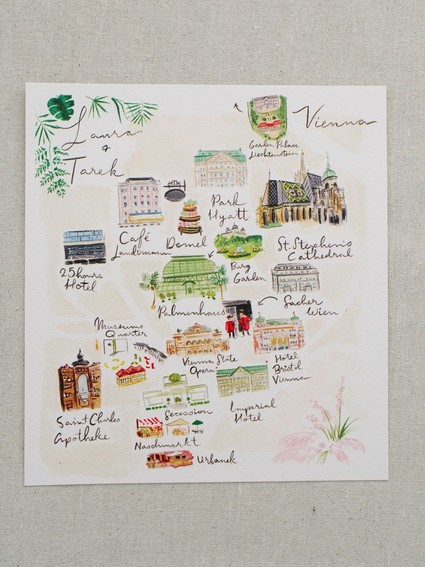 Laura
&
Tarek
Vienna
Garden Palace
Liechtenstein
Park
Hyatt
Café
Landtmann
Demel
Burg
Garden
St. Stephen's
Cathedral
25hours
Hotel
Palmenhaus
Sacher
Wien
Museums
Quarter
Vienna State
Opera
Hôtel
Bristol
Vienna
Saint Charles
Apotheke
Secession
Imperial
Hotel
Naschmarkt
Urbanek